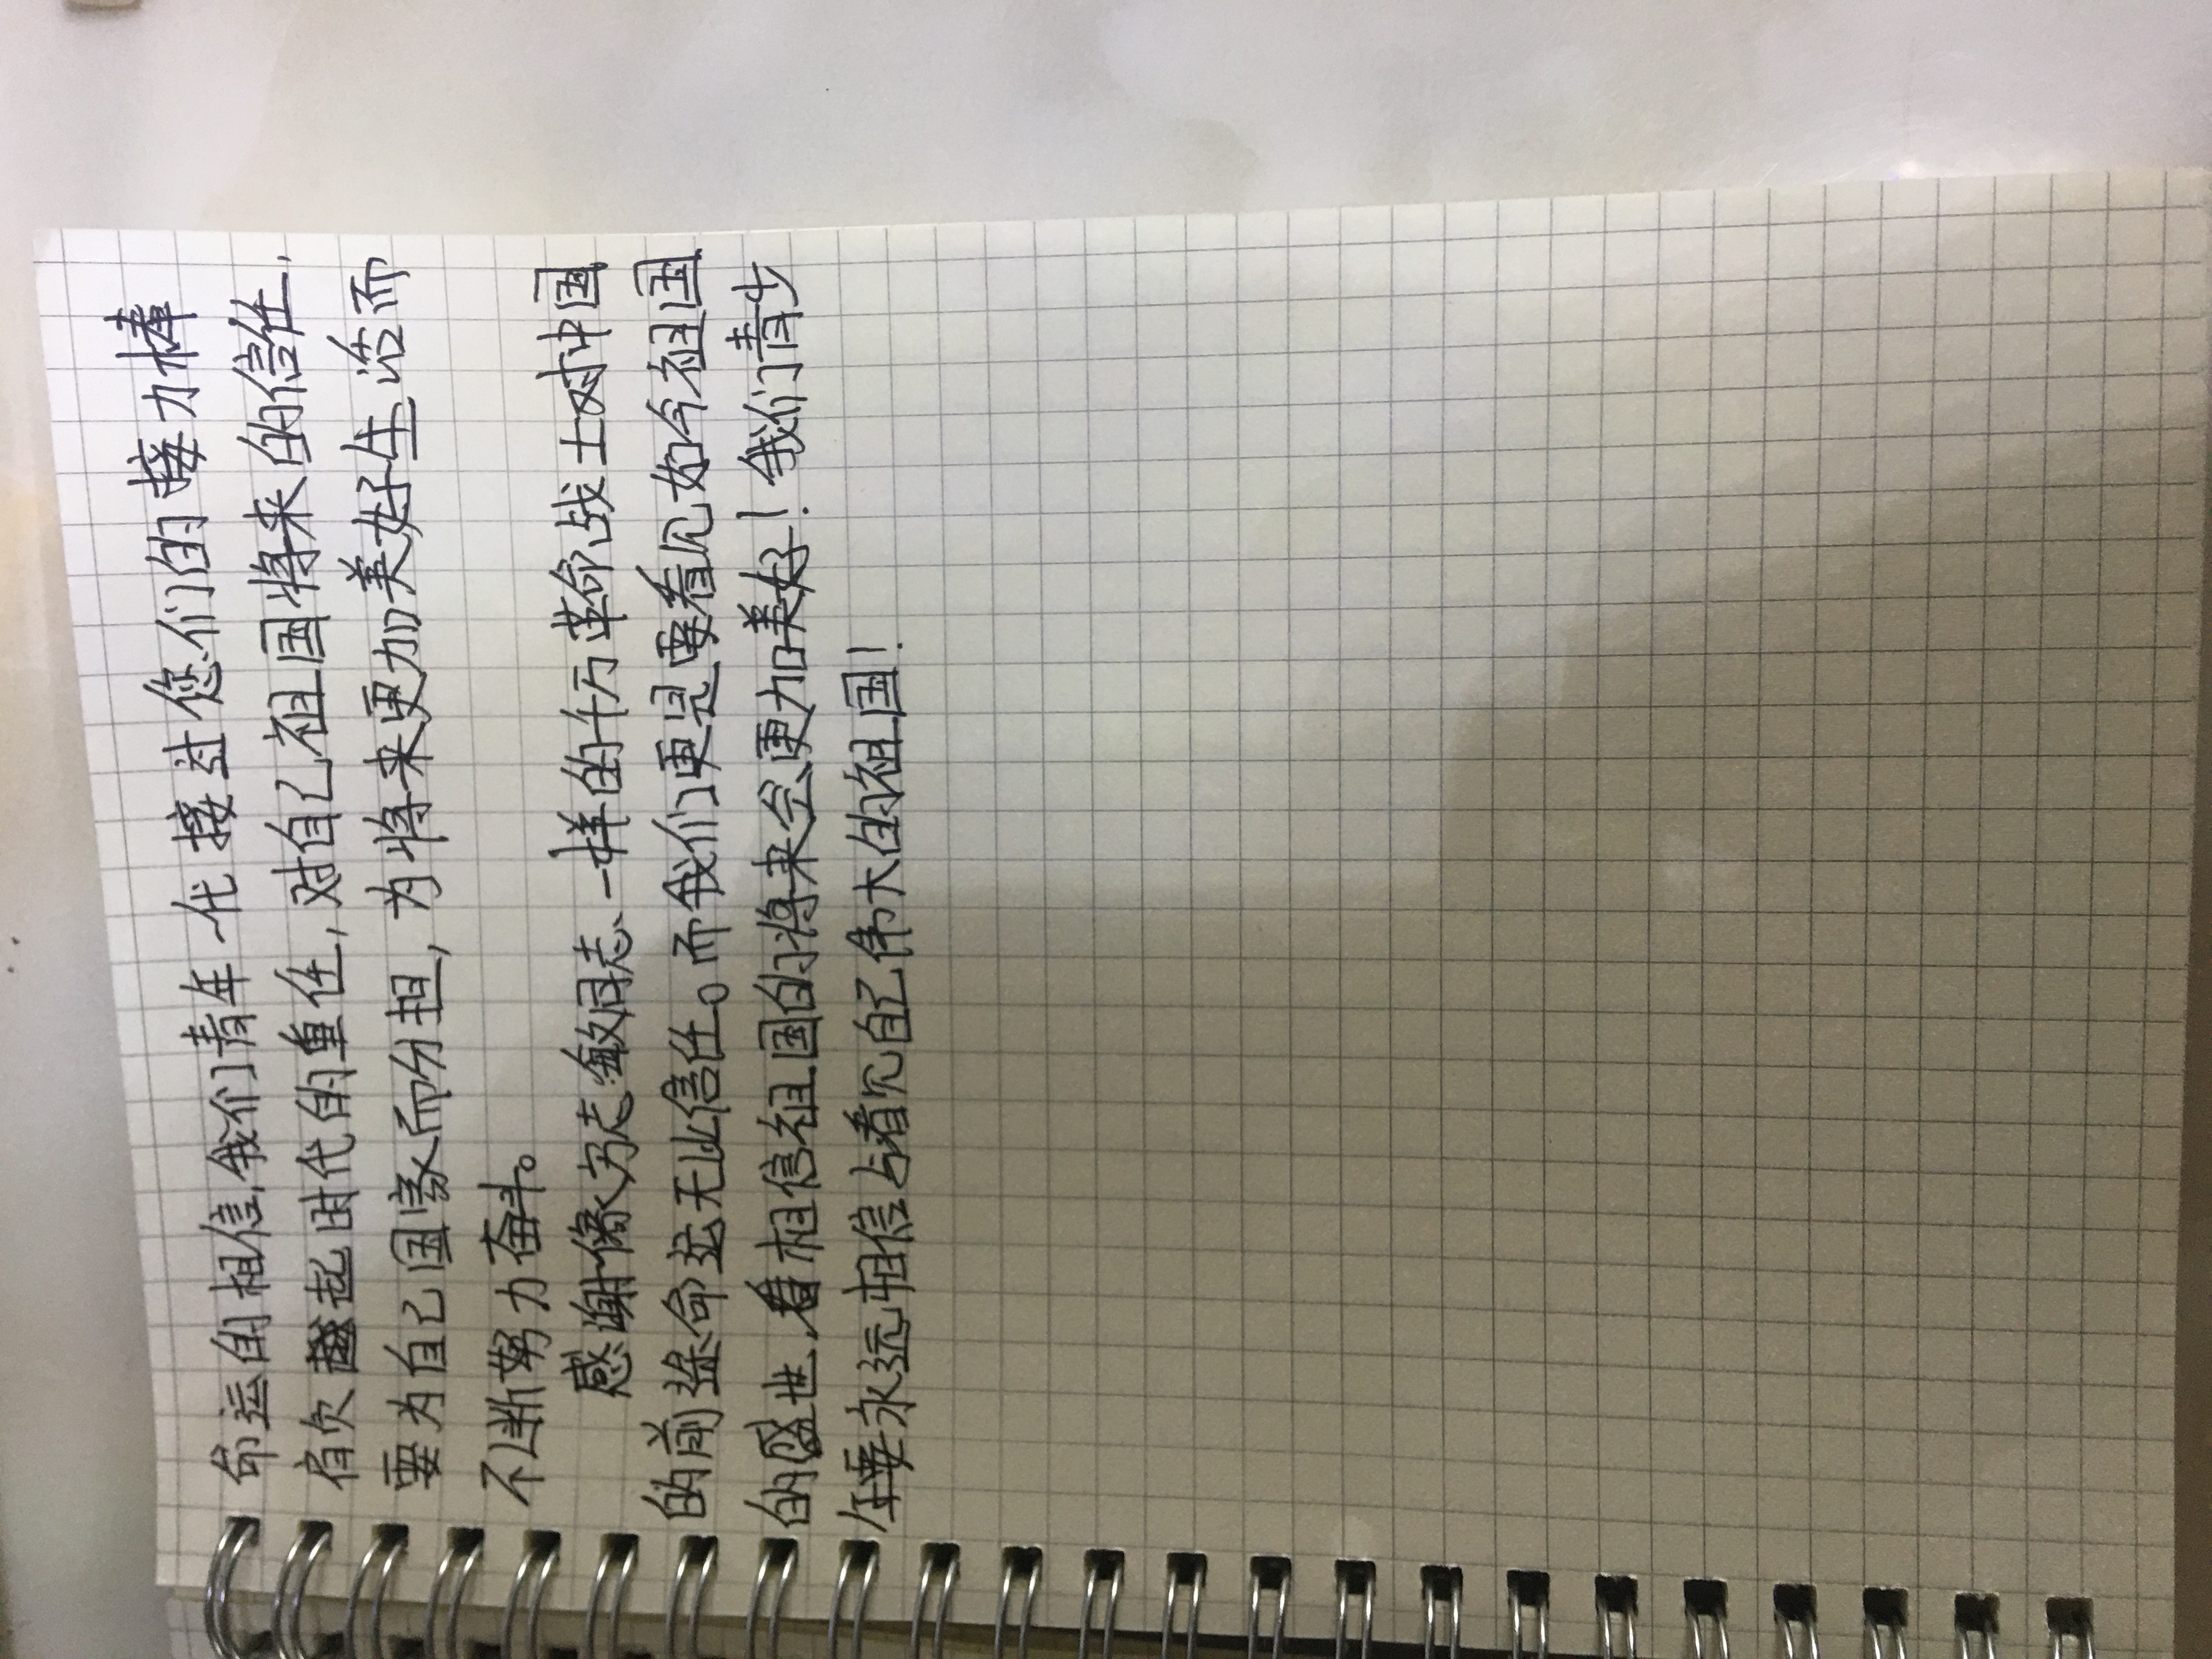 命运的相信,我们青年一代接过您们的接力棒
肩负起时代的重任,对自己祖国将来的信任,
要为自己国家而分担,为将来更加美好生活而
不断努力奋斗。
感谢像方志敏同志一样的千万革命战士对中国
的前途命运无比信任。而我们更是要看见如今祖国
的盛世,看相信祖国的将来会更加美好!我们青少
年要永远相信与看见自己伟大的祖国!